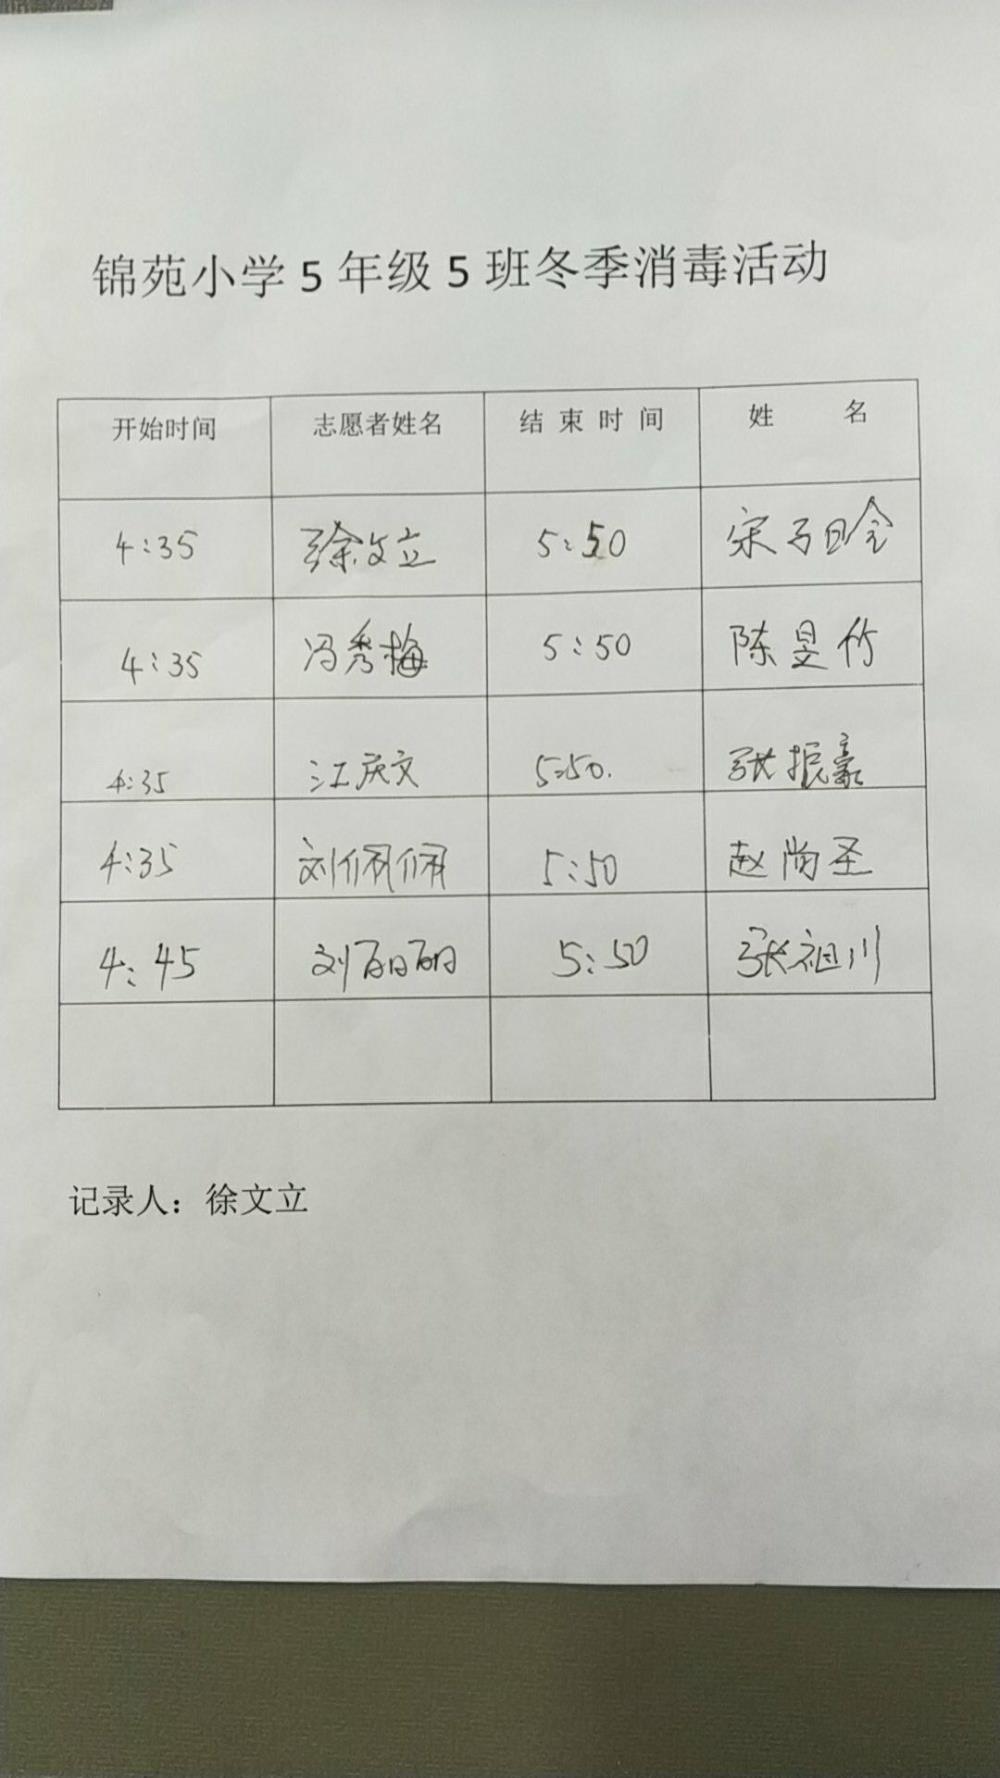 锦苑小学5年级5班冬季消毒活动
开始时间 志愿者姓名 结束时间 姓名
4:35 徐文立 5:50 宋子晗
4:35 冯秀梅 5:50 陈昱竹
4:35 江庆文 5:50. 张振豪
4:35 刘佩佩 5:50 赵尚圣
4:45 刘丽丽 5:50 张祖川
记录人：徐文立